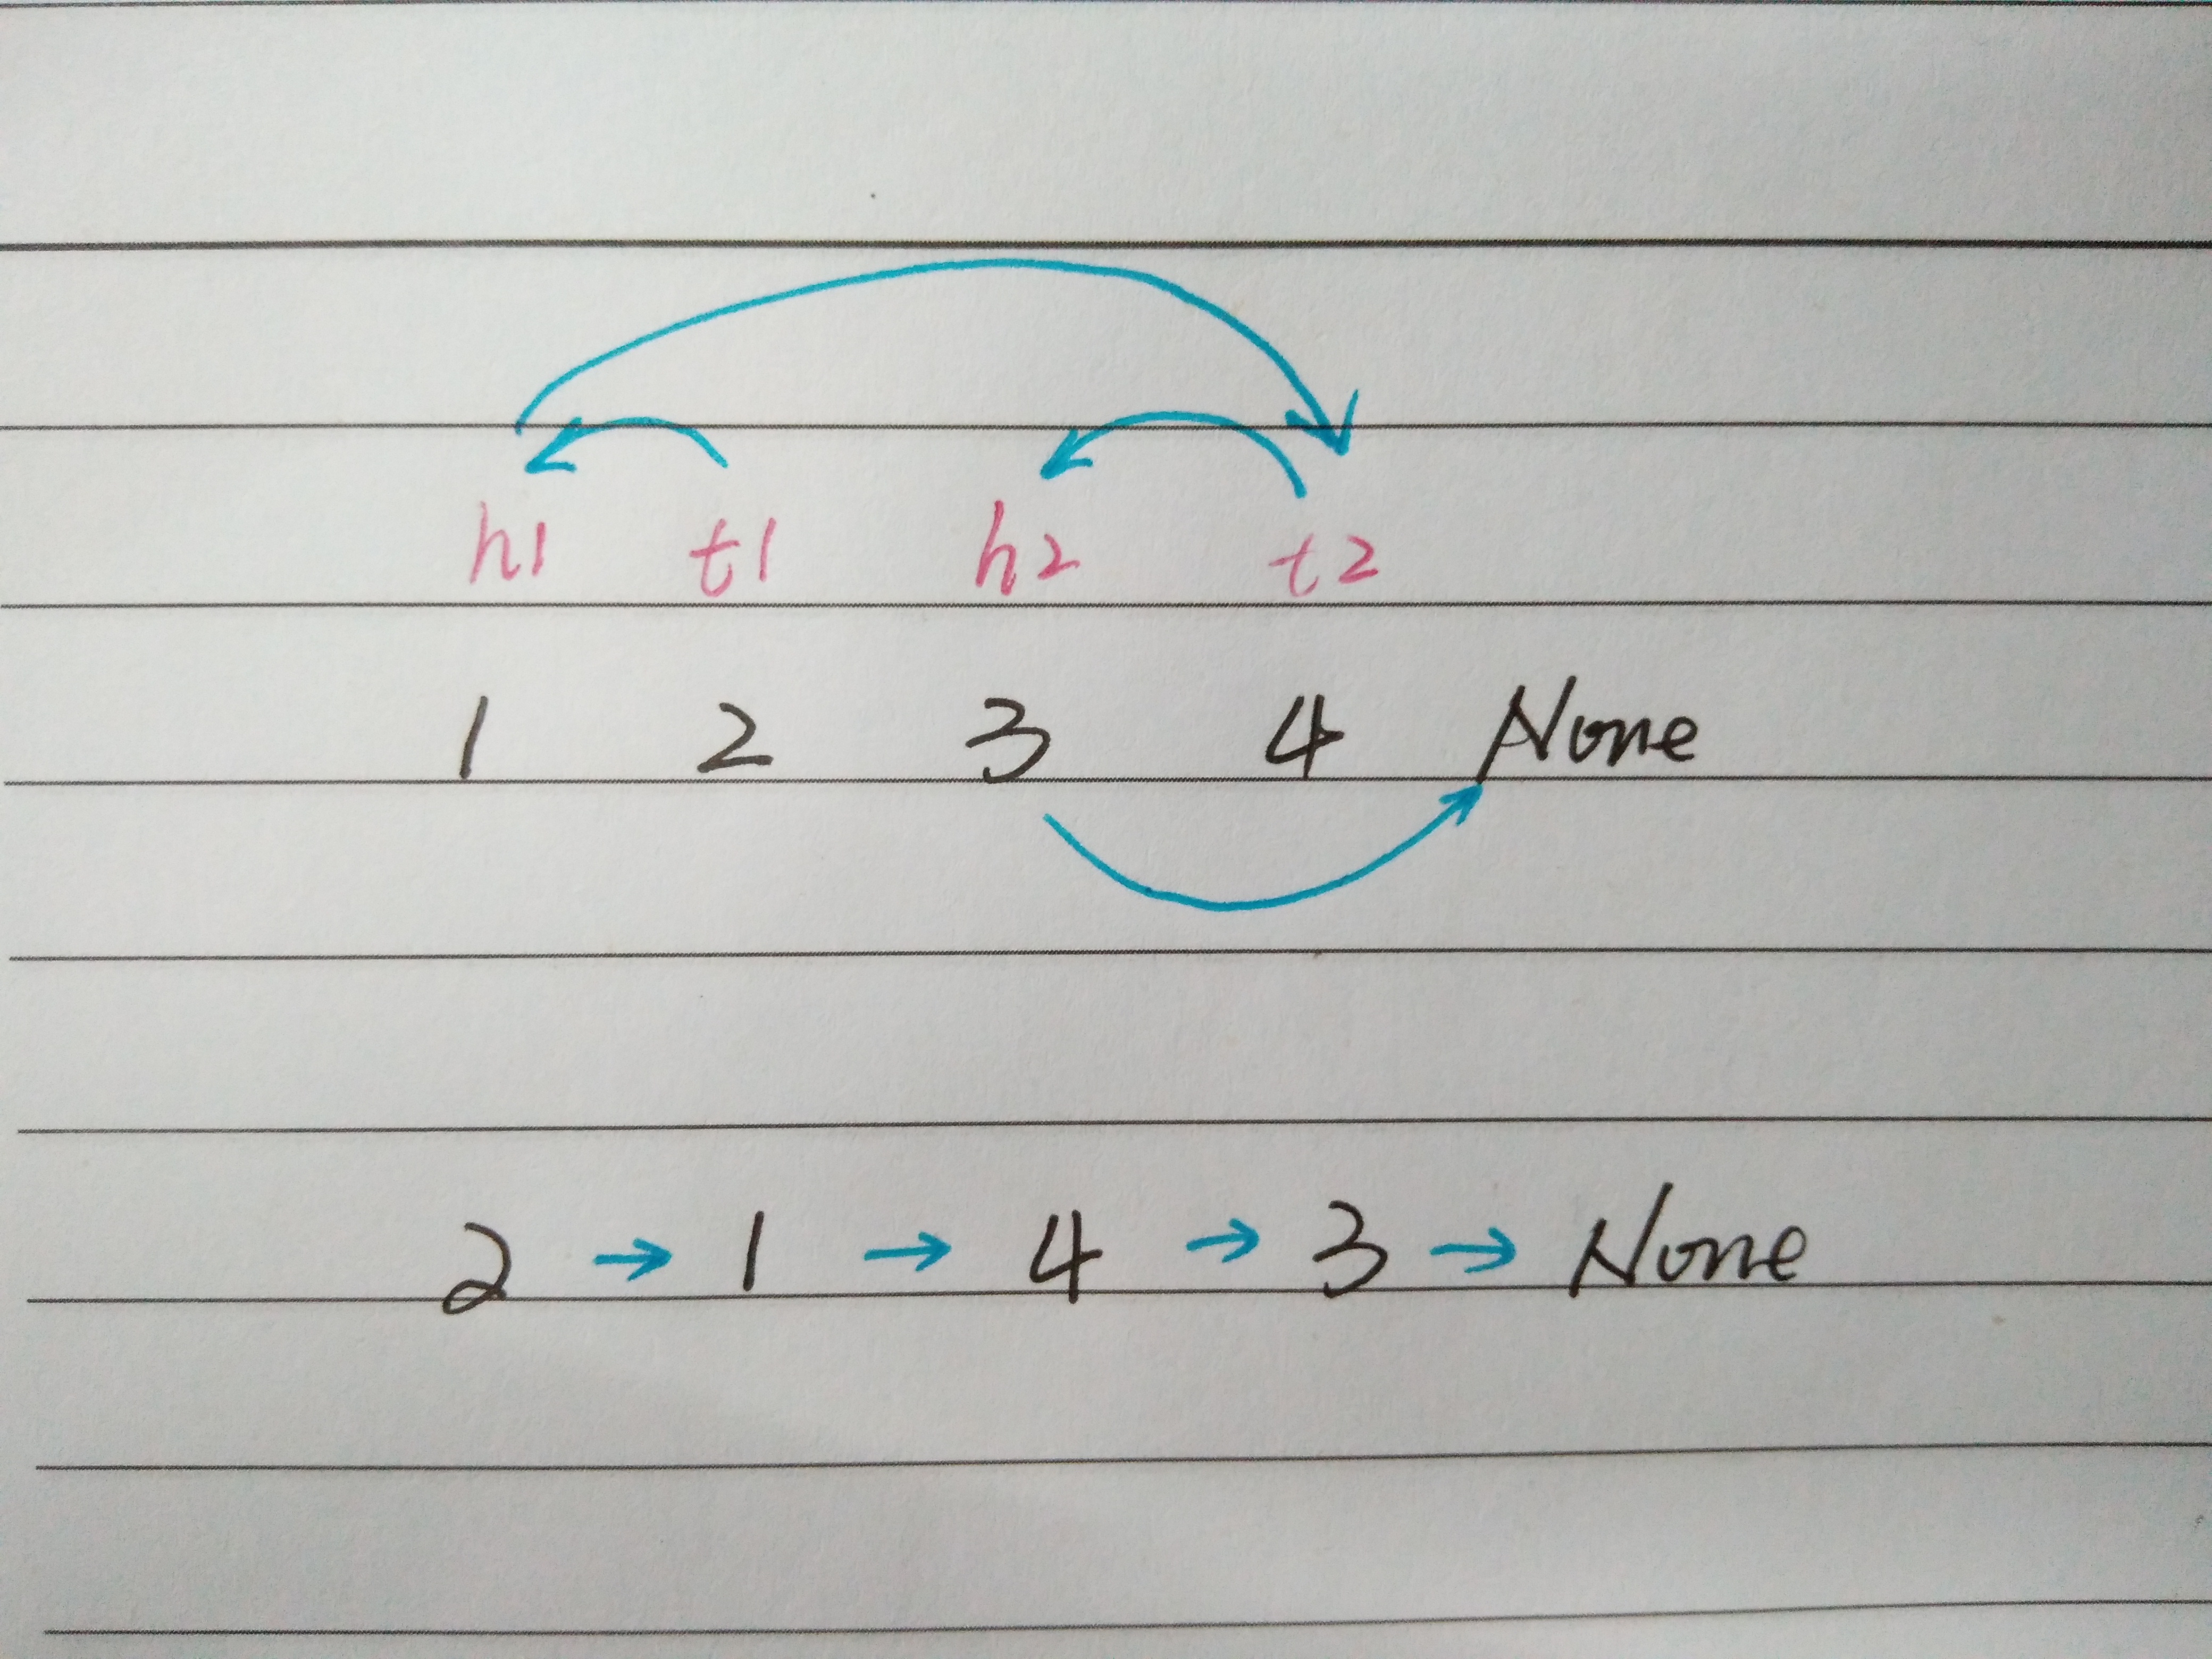 h1 t1 h2 t2
1 2 3 4 None
2 → 1 → 4 → 3 → None